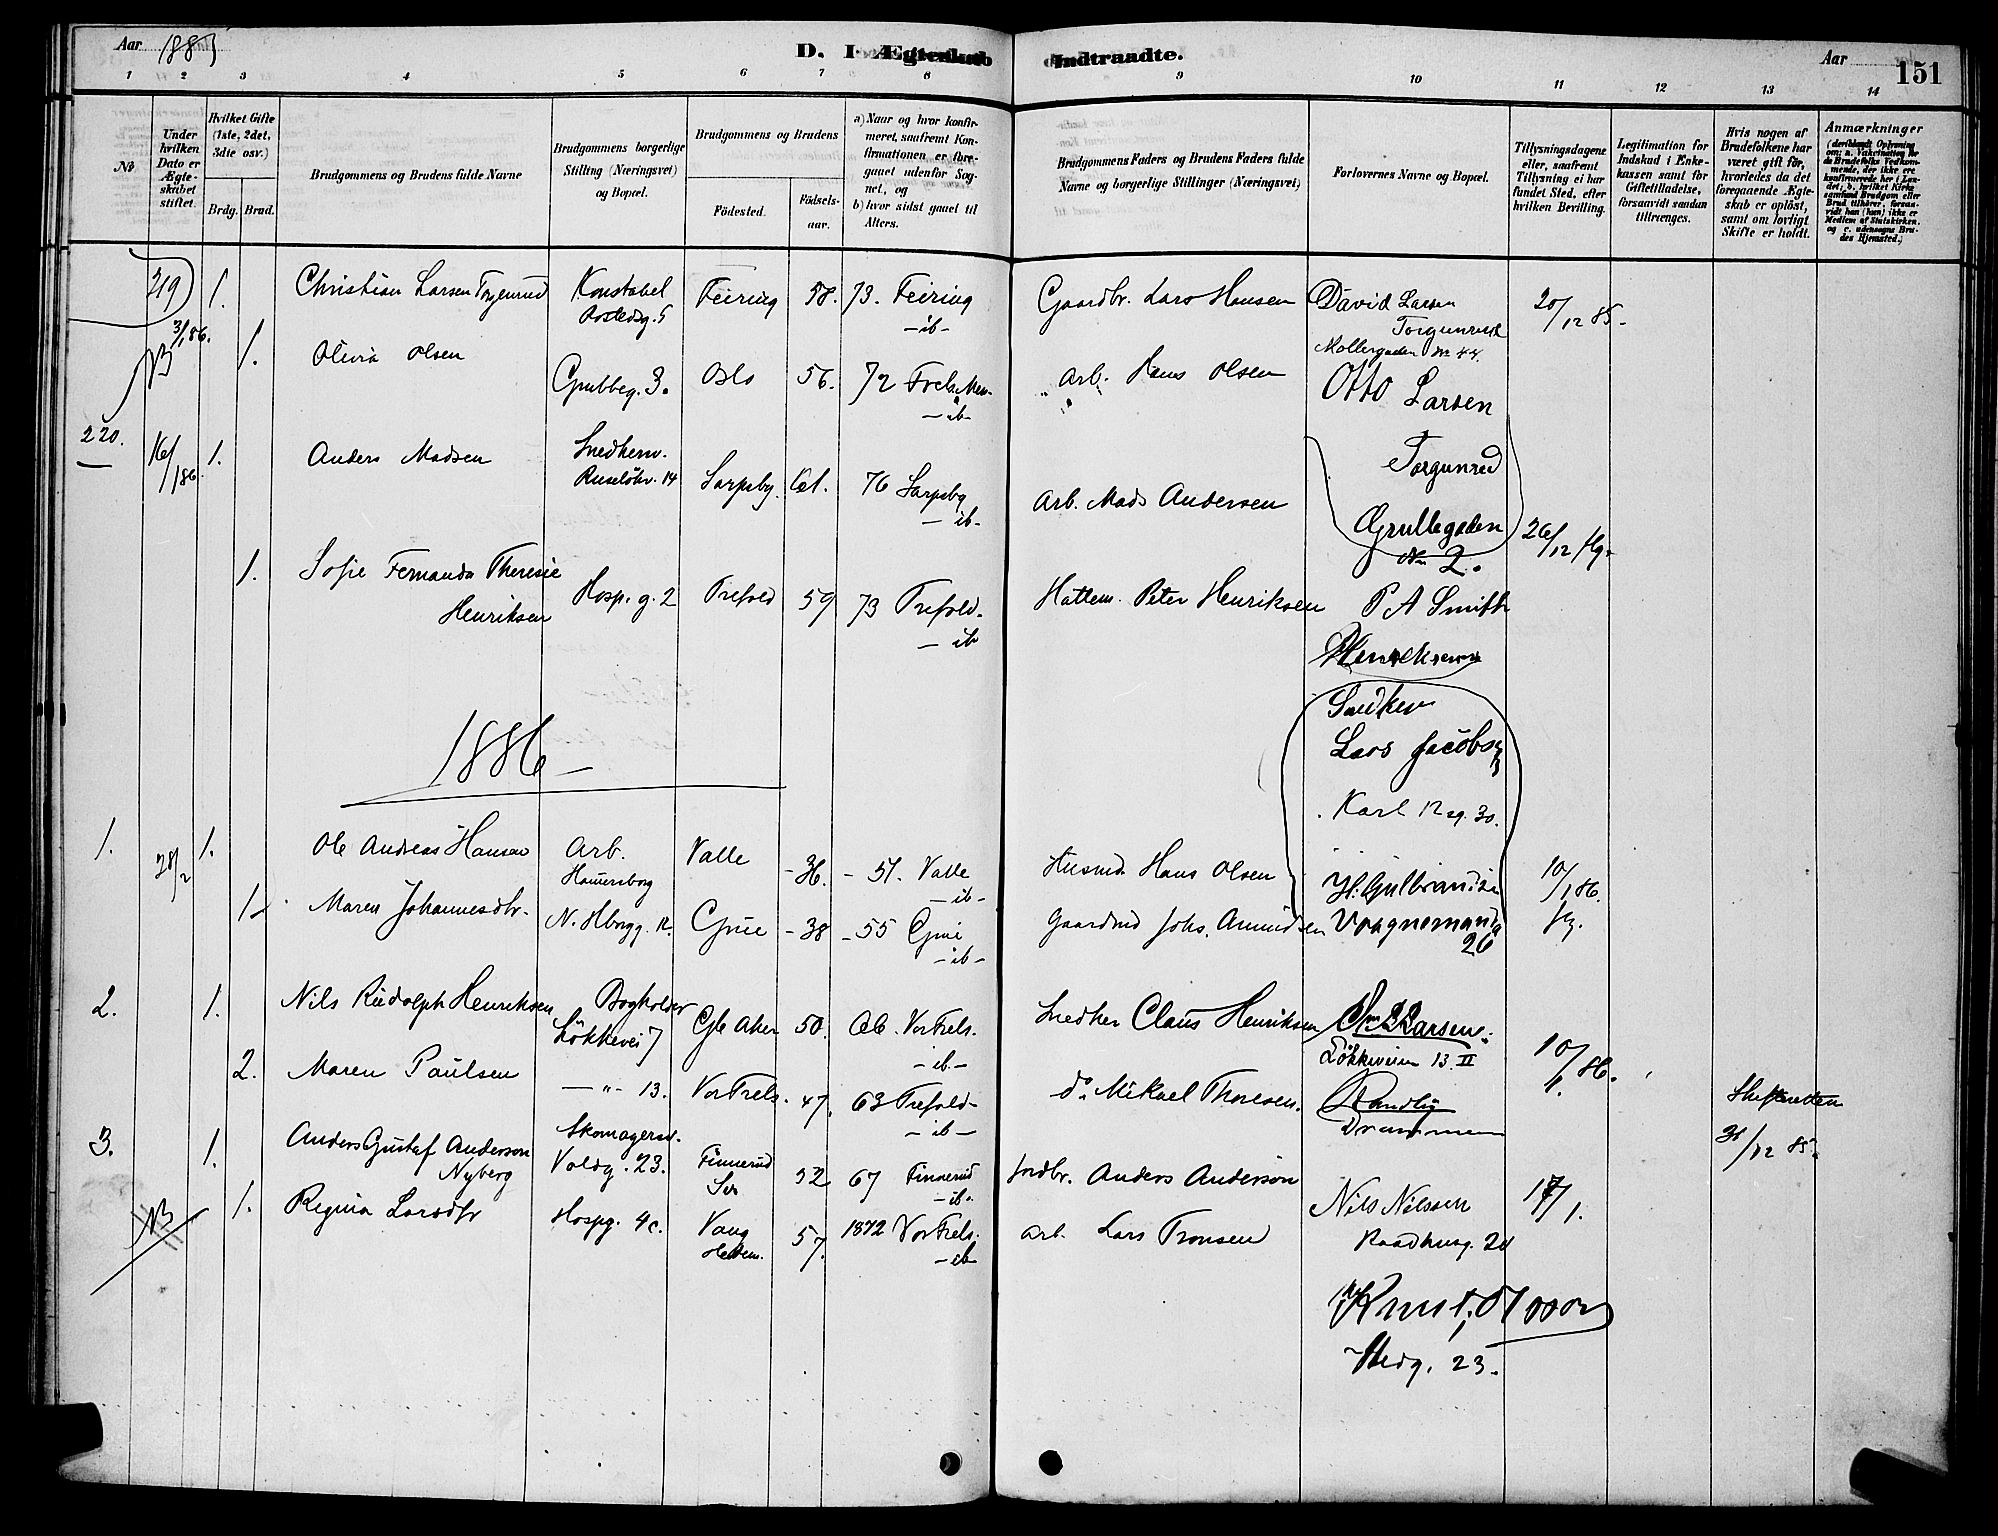 Aar 1885
D. I Ægteskab Indtraadte.
Aar
151
1 2 3 4 5 6 7 8 9 10 11 12 13 14
No
Under hvilken Dato er Ægteskabet stiftet.
Hvilket Gifte (1ste, 2det, 3die osv.)
Brdg. Brud.
Brudgommens og Brudens fulde Navne
Brudgommens borgerlige Stilling (Næringsvei) og Bopæl.
Brudgommens og Brudens
Fødested.
Fødsels-aar.
a) Naar og hvor konfirmeret, saafremt Konfirmationen er foregaaet udenfor Sognet, og
b) hvor sidst gaaet til Alters.
Brudgommens Faders og Brudens Faders fulde Navne og borgerlige Stillinger (Næringsvei)
Forlovernes Navne og Bopæl.
Tillysningsdagene eller, saafremt Tillysning ei har fundet Sted, efter hvilken Bevilling.
Legitimation for Indskud i Enkekassen samt for Giftetilladelse, forsaavidt saadan tiltrænges.
Hvis nogen af Brudefolkene har været gift før, hvorledes da det foregaaende Ægteskab er opløst, samt om lovligt Skifte er holdt.
Anmærkninger (deriblandt Oplysning om: a. Vakcination for de Brudefolks Vedkommende, der ikke ere konfirmerede her i Landet; b. hvilket Kirkesamfund Brudgom eller Brud tilhører, forsaavidt han (hun) ikke er Medlem af Statskirken, og c. udensogns Brudes Hjemsted.)
219 1. Christian Larsen Torgenrud Konstabel Feiring 58. 73. Feiring Gaardbr. Lars Hansen David Larsen 20/12 85.
3/1 86. -ib- Torgunrud
Møllergaden No 44.
NB 1. Olivia Olsen Grubbeg. 3. Oslo 56. 72 Frels. Arb. Hans Olsen Otto Larsen
-ib- Torgunrud
220. 16/1 86. 1. Anders Madsen Snedkersv. Sarpsbg. 61. 76 Sarpsbg Arb. Mads Andersen Grubbegaden 26/12 flg.
Ruseløkv. 14 -ib- No 2.
1. Sofie Fernanda Theresie Henriksen Hosp. g. 2 Trefold 59 73 Trefold. Hattem. Peter Henriksen P A Smith
-ib
Henriksen
Snedker
Lars Jacobsen
Karl 12 g. 30.
1886
1. 28/2 1. Ole Andreas Hansen Arb. Valle -36. -51. Valle Husmd. Hans Olsen H. Gulbrandsen 10/1 86.
Hamersborg -ib-
1. Maren Johannesdtr. N. Hbrgg. 12. Grue -38 -55 Grue Gaardmd Johs. Amundsen Vognmandsg 26 flg.
-ib-
2. 1. Nils Rudolph Henriksen Bogholder Gle Aker 50. 66. Vor Frels. Snedker Claus Henriksen Larsen.
Løkkevei 7 -ib- Løkkeveien 13 II 10/1 86.
2. Maren Paulsen -"- 13. Vor Frels. 47. 63 Trefold- do Mikael Thoresen. Drammen Skifteretten
-ib- 30/12 85.
3. 1. Anders Gustaf Anderson Nyberg Skomagersv. Finnerud 52. 67 Finnerud Jordbr. Anders Anderson Nils Nilssen 17/1.
Voldg. 23. -ib- Raadhusg. 20
NB 1. Regina Larsdtr Hospg. 4c. Vang 57. 1872 Vor Frels. Arb. Lars Tronsen
Hedem. -ib-
23.